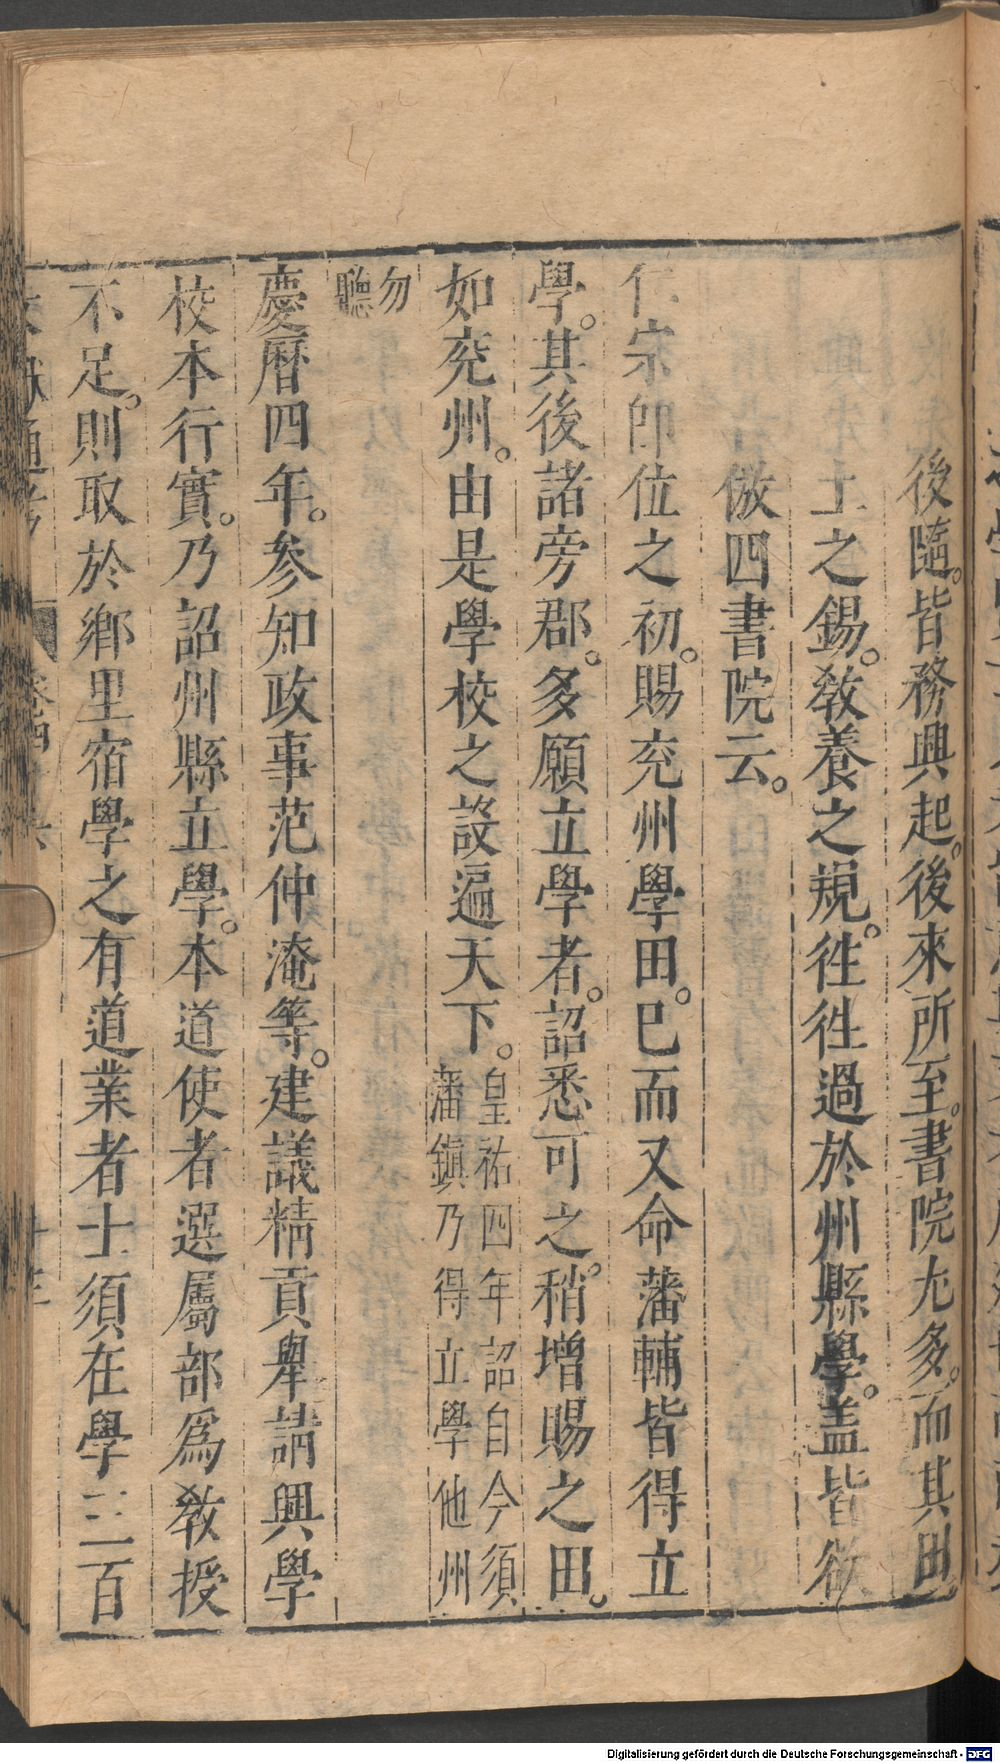 後隨。皆務興起。後來所至。書院尤多。而其田
土之錫。敎養之規。徃徃過於州縣學。盖皆欲
倣四書院云。
仁宗即位之初。賜兖州學田。已而又命藩輔皆得立
學。其後諸旁郡。多願立學者。詔悉可之。稍增賜之田。
如兖州。由是學校之設遍天下。皇祐四年詔自今須
藩鎮乃得立學他州
勿
聽
慶曆四年。参知政事范仲淹等。建議精貢舉請興學
校本行實。乃詔州縣立學。本道使者選屬部爲敎授
不足。則取於鄉里宿學之有道業者士須在學三百
Digitalisierung gefördert durch die Deutsche Forschungsgemeinschaft - DFG